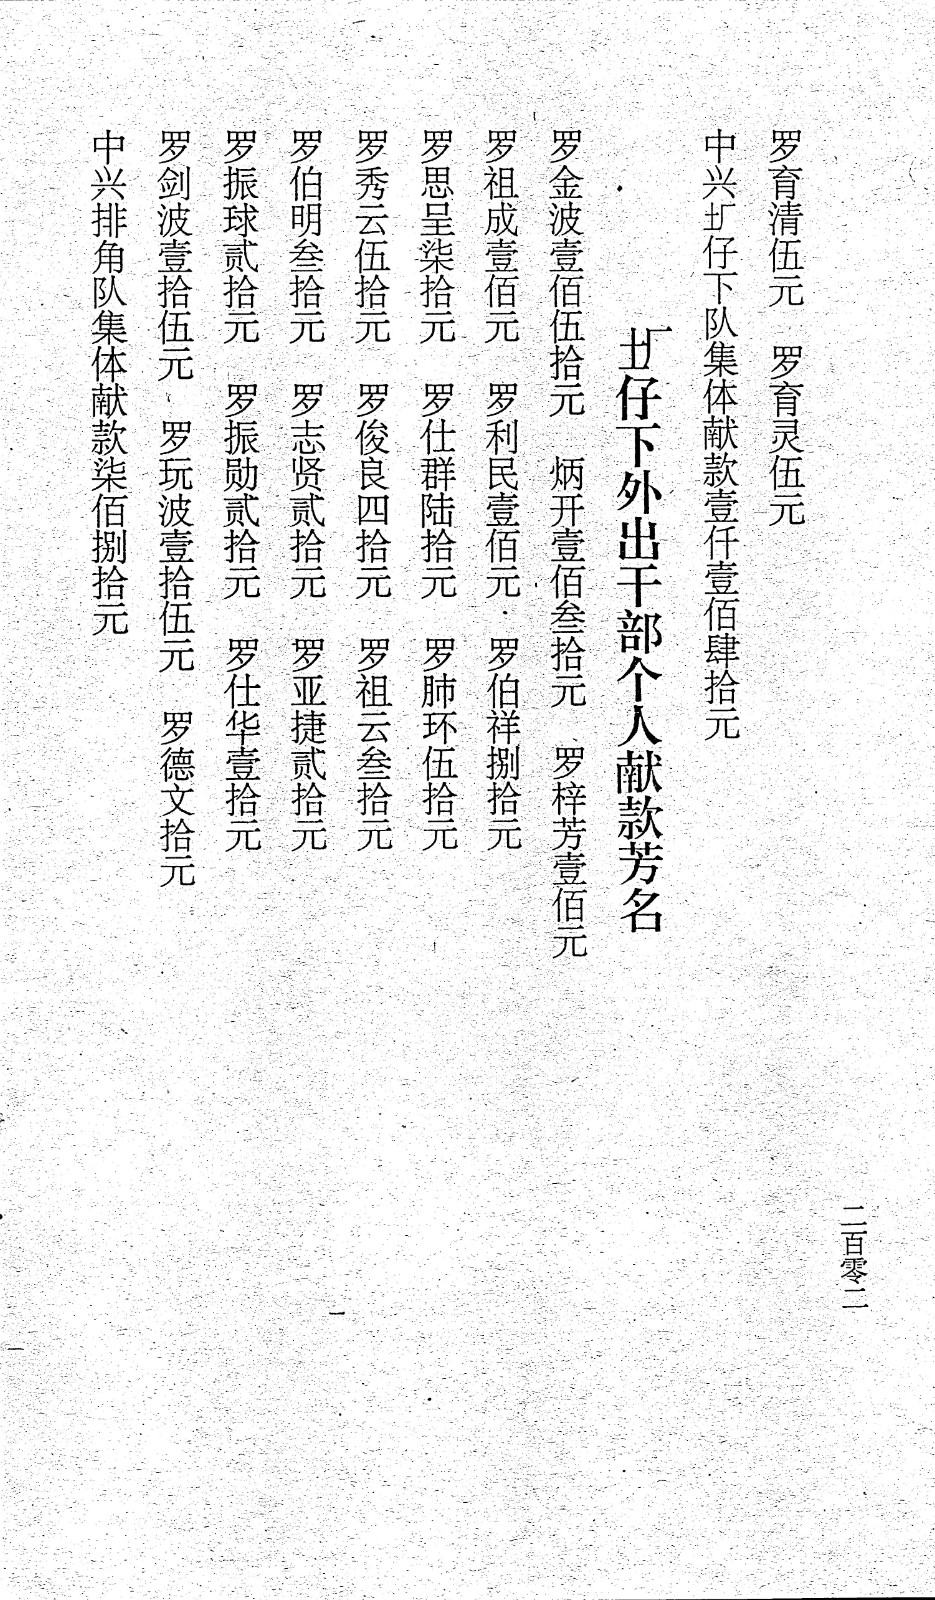 二百零二
罗育清伍元 罗育灵伍元
中兴圹仔下队集体献款壹仟壹佰肆拾元
圹仔下外出干部个人献款芳名
罗金波壹佰伍拾元 炳开壹佰叁拾元 罗梓芳壹佰元
罗祖成壹佰元 罗利民壹佰元 罗伯祥捌拾元
罗思呈柒拾元 罗仕群陆拾元 罗肺环伍拾元
罗秀云伍拾元 罗俊良四拾元 罗祖云叁拾元
罗伯明叁拾元 罗志贤贰拾元 罗亚捷贰拾元
罗振球贰拾元 罗振勋贰拾元 罗仕华壹拾元
罗剑波壹拾伍元 罗玩波壹拾伍元 罗德文拾元
中兴排角队集体献款柒佰捌拾元